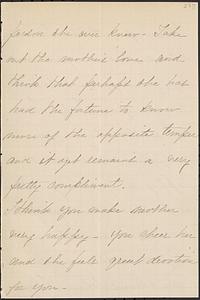 person she ever knew - Take
out the mother's love and
think that perhaps she has
had the fortune to know
more of the opposite temper
and it yet remains a very
pretty compliment.
I think you make mother
very happy - you cheer her
and she feels great devotion
for you -